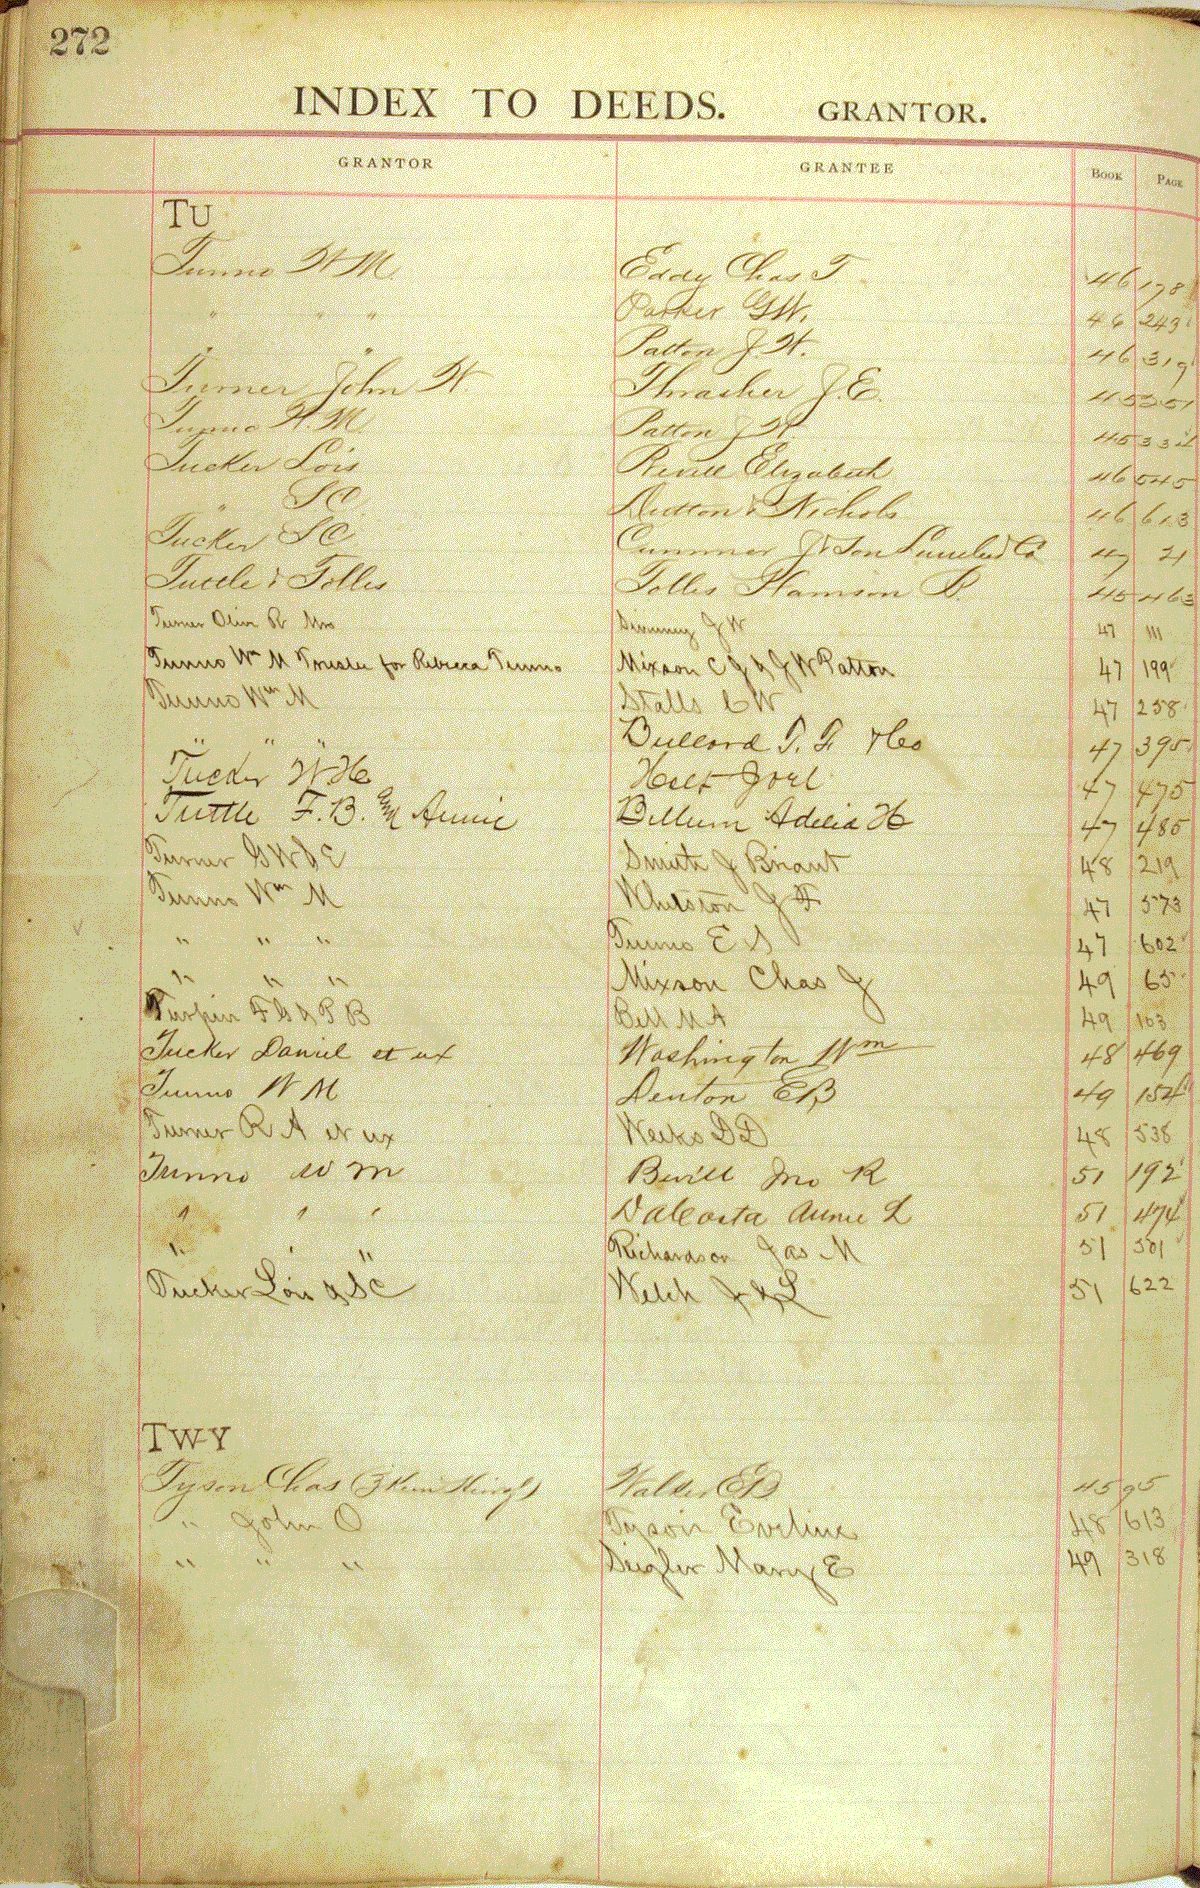 272
INDEX TO DEEDS. GRANTOR.
GRANTOR GRANTEE BOOK PAGE
TU
Tunno W M. Eddy Chas T. 46 178
" " " Parker GW. 46 249
" " Patton J. W. 46 319
Turner John W. Thrasher J. E. 45
Tunno W. M. Patton J W 45 334
Tucker Lois Elizabeth 46 545
" S C Dutton & Nichols 46 613
Tucker S C Cummer & Son Lumber Co 47 21
Tuttle & Tolles Tolles Harrison R. 45 463
Turner Olive R Mrs J W 47 111
Tunno Wm M Trustee for Rebecca Tunno Mixson C J & J W Patton 47 199
Tunno Wm M Stalls C W 47 258
" " " Bullard T. G. & Co 47 395
Tucker W H Holt Joel 47 475
Tuttle F. B. & Annie Adelia H 47 485
Turner G W & E Smith J Briant 48 219
Tunno Wm M Whilston J F 47 573
" " " Tunno E S 47 602
" " " Mixson Chas J 49 65
Turpin F G & P B Bell M A 49 103
Tucker Daniel et ux Washington Wm 48 469
Tunno W M Denton E B 49 154
Turner R A et ux Weeks D D 48 538
Tunno W M Bevill Jno R 51 192
" " " DaCosta Annie L 51 474
" " " Richardson Jas M 51 501
Tucker Lois & S C Welch J & L 51 622
TWY
Tyson Chas Walker E B 45 95
" John O Tyson Eveline 48 613
" " " Ziegler Mary E 49 318